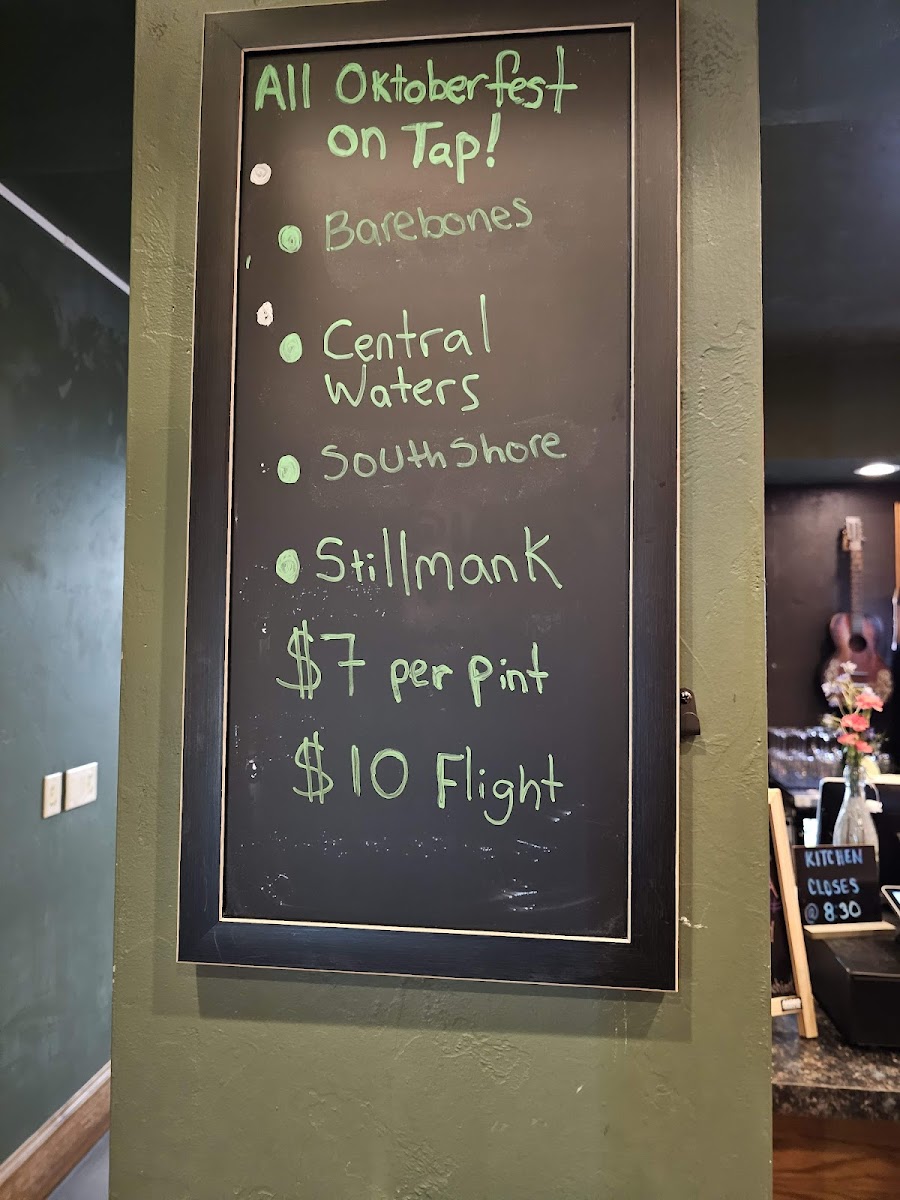 All Oktoberfest
on Tap!
Barebones
Central
Waters
South Shore
Stillmank
$7 per pint
$10 Flight
KITCHEN
CLOSES
@ 8:30